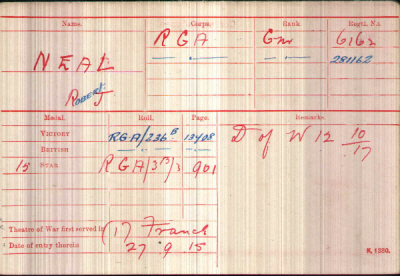 Name. Corps. Rank. Regtl. No.
NEAL R G A Gnr 6162
" " 281162
Robert J
Medal. Roll. Page. Remarks.
VICTORY RGA/236B 13408 D of W 12/10/17
BRITISH " "
15 STAR RGA/3B/3 901
Theatre of War first served in (1) France
Date of entry therein 27.9.15
K. 1380.